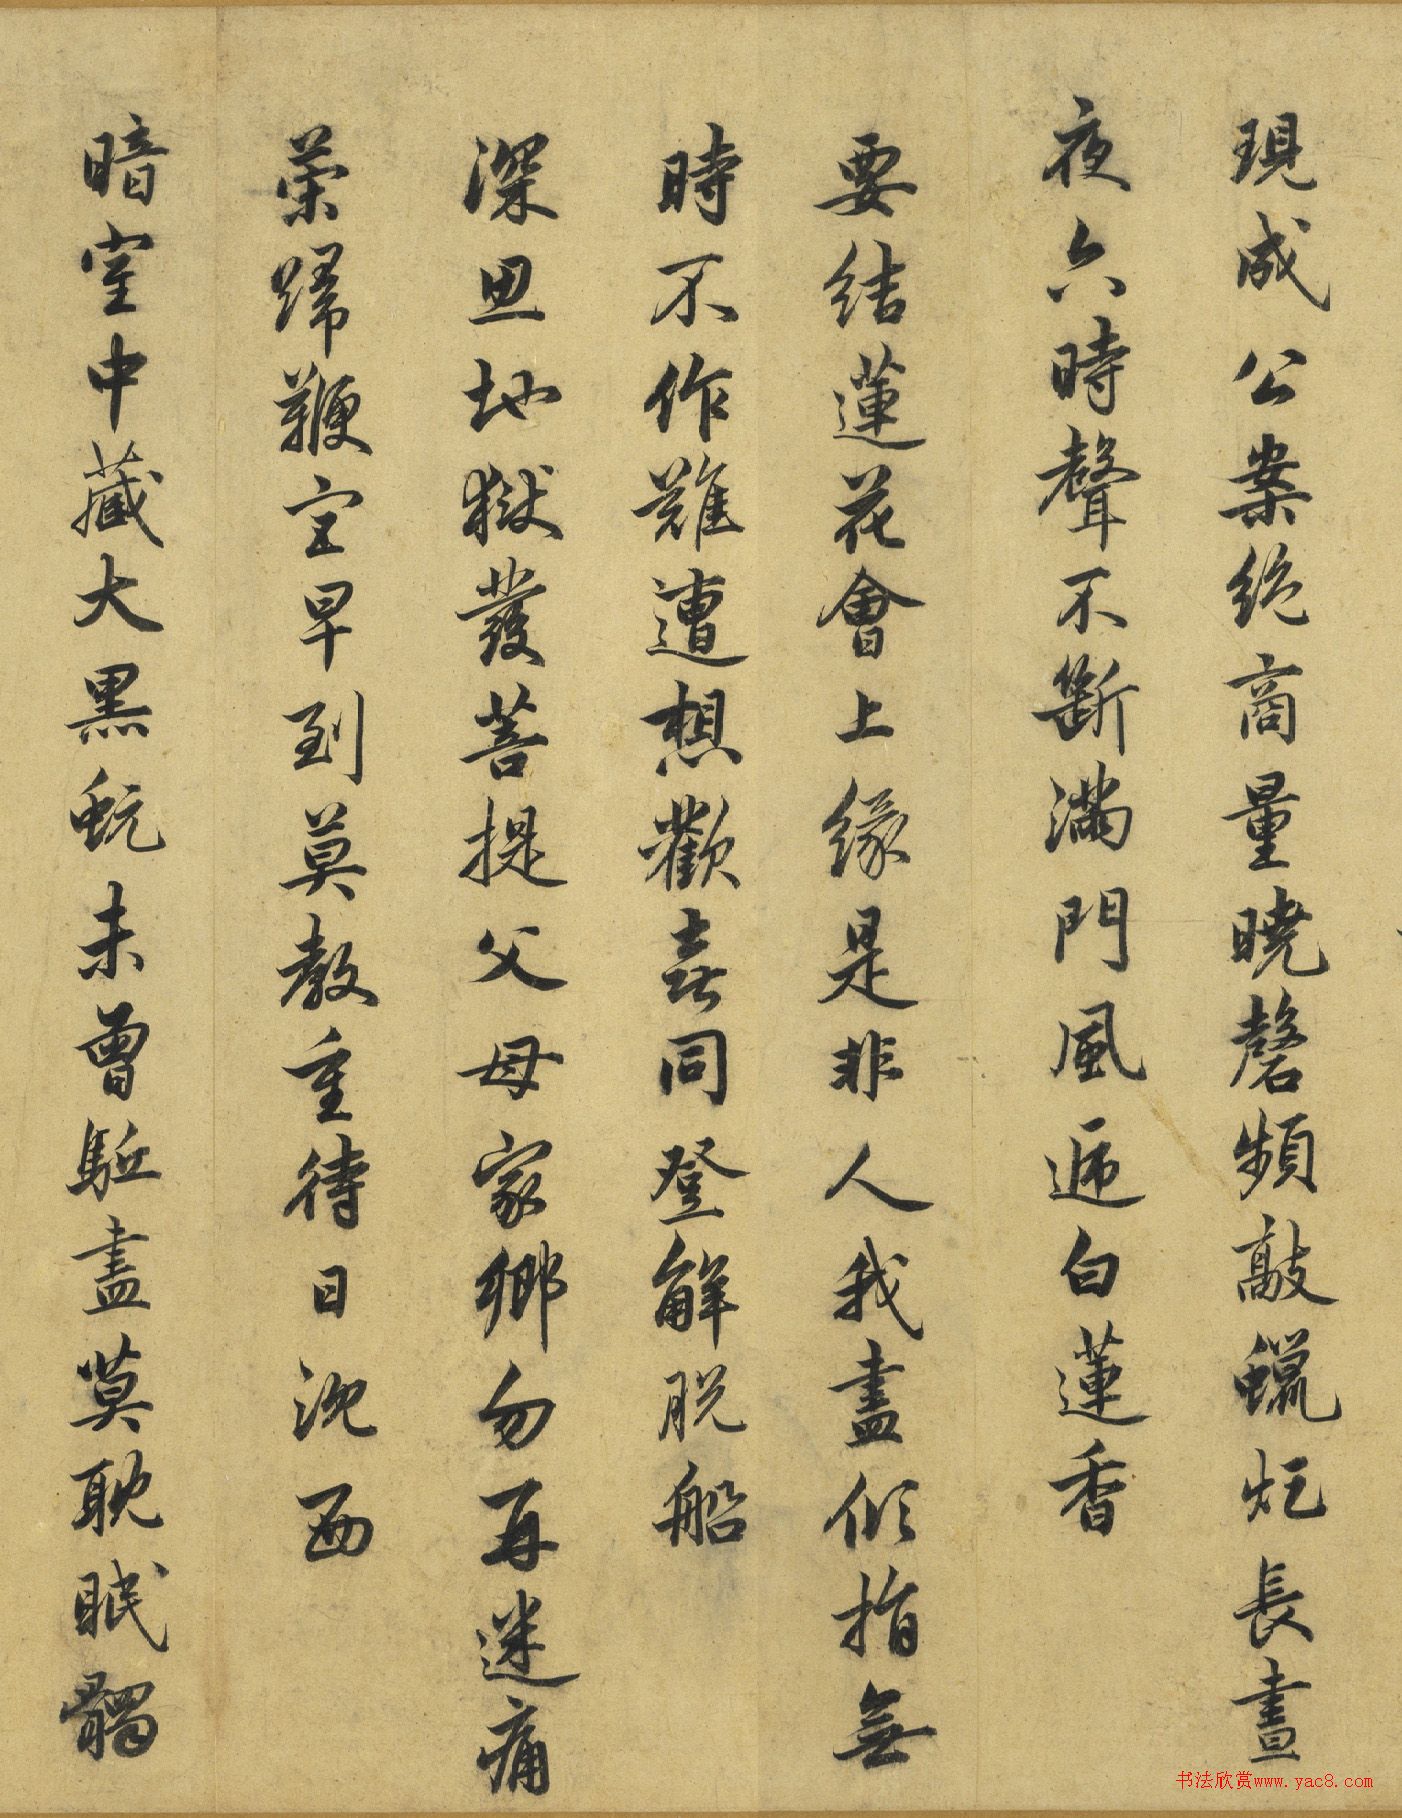 現成公案絕商量曉磬頻敲蠟炬長晝
夜六時聲不斷滿門風遞白蓮香
要結蓮花會上緣是非人我盡傾指無
時不作難遭想歡喜同登解脱船
深思地獄發菩提父母家鄉勿再迷痛
策歸鞭宜早到莫教重待日沈西
暗室中藏大黑蚖未曾駈盡莫耽眠髑
书法欣赏www.yac8.com